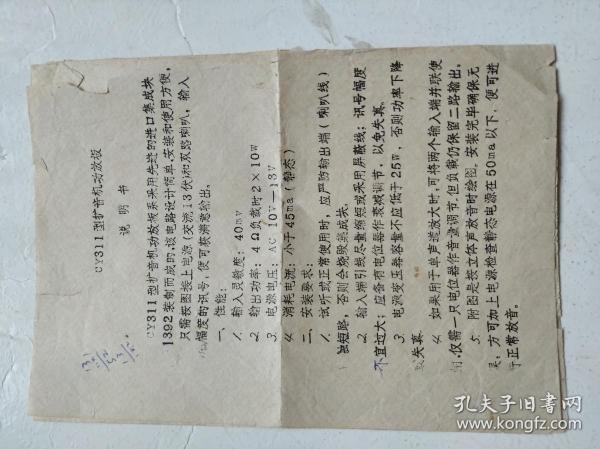 CY311型扩音机功放板
说明书
CY311型扩音机功放板系采用先进的进口集成块
1392装制而成的；该电路设计简单，安装和使用方便，
只需按图接上电源（交流13伏）和双路喇叭，输入
幅度的讯号，便可获满意输出。
一、性能：
1. 输入灵敏度：40mV
2. 输出功率：4Ω负载时2×10W
3. 电源电压：AC 10V—13V
4. 消耗电流：小于45ma（静态）
二、安装要求：
1. 试听或正常使用时，应严防输出端（喇叭线）
短路，否则会烧毁集成块。
2. 输入端引线尽量缩短或采用屏蔽线；讯号幅度
不宜过大；应备有电位器作衰减调节，以免失真。
3. 电源变压器容量不应低于25W，否则功率下降
失真。
4. 如果用于单声道放大时，可将两个输入端并联使
用，仅需一只电位器作音量调节，但负载仍保留二路输出。
5. 附图是按立体声放音时绘图，安装完毕确保无
误，方可加上电源检查静态电源在50ma以下，便可进
行正常放音。
孔夫子旧书网
www.kongfz.com